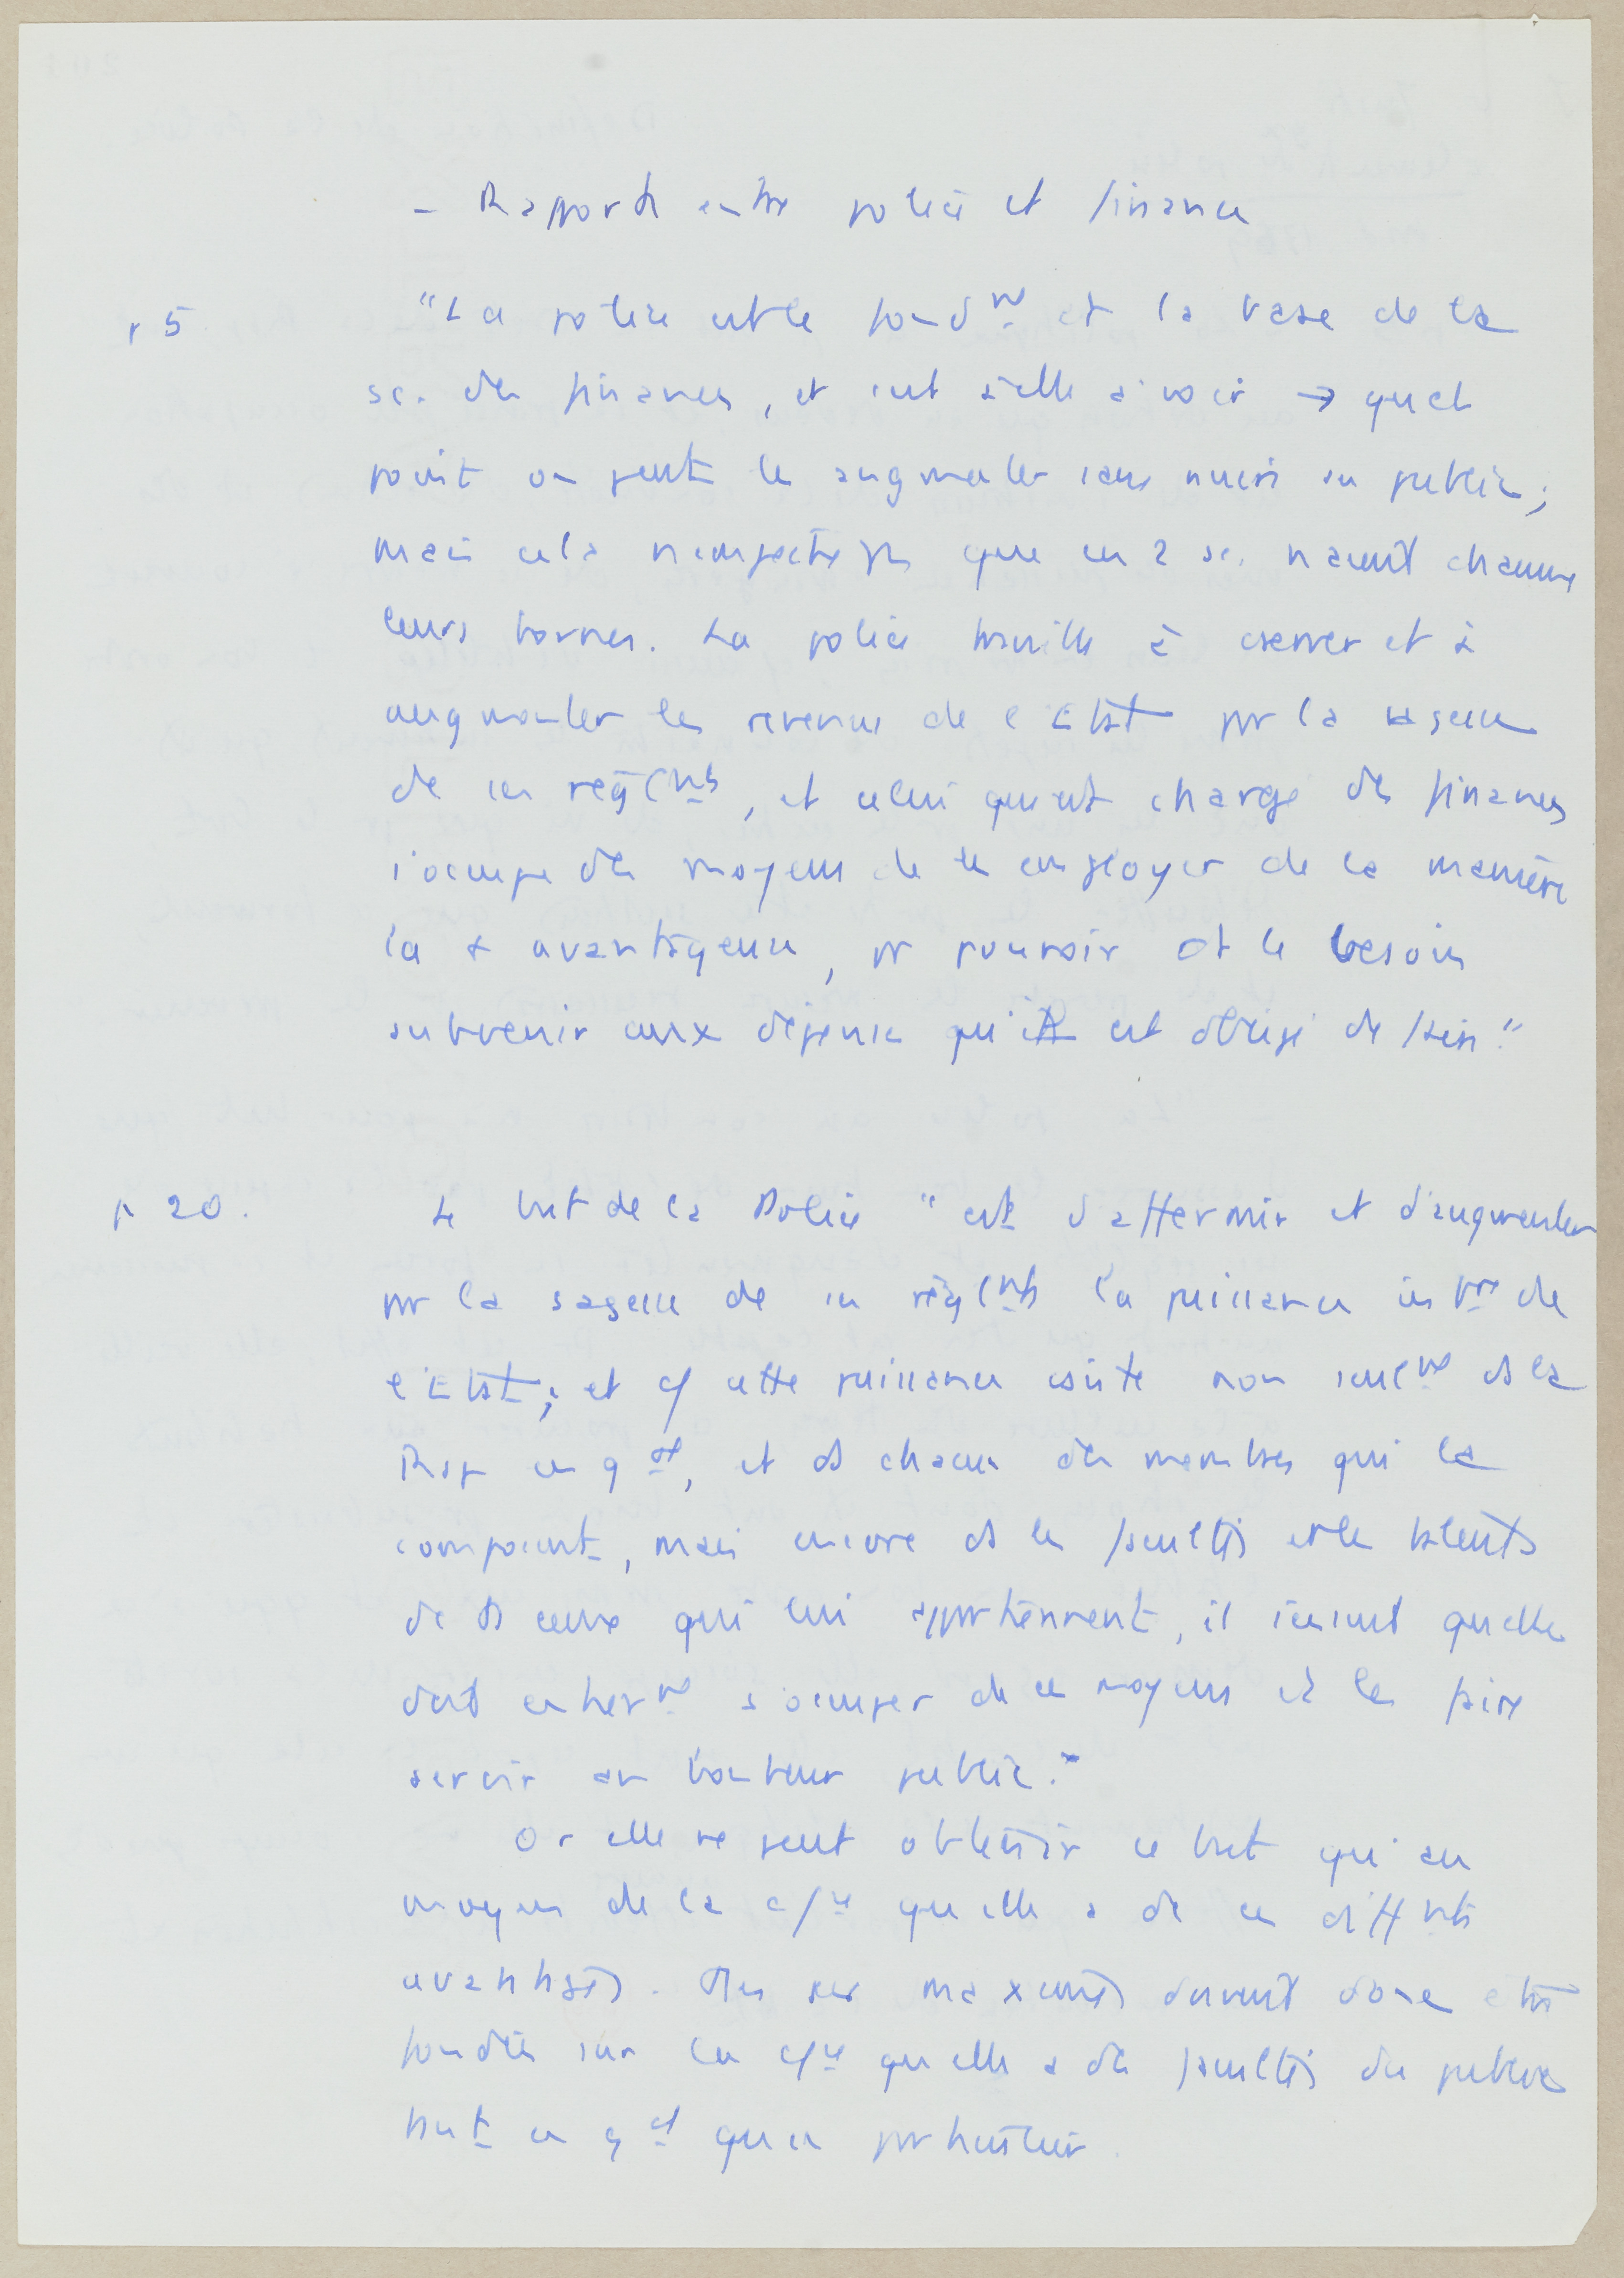 - Rapports entre police et finance
p 5 "La police est le fond^mt et la base de la
sc. des finances, et c'est à elle à voir → quel
point on peut les augmenter sans nuire au public ;
mais cela n'empêche pas que ces 2 sc. n'aient chacune
leurs bornes. La police travaille à conserver et à
augmenter les revenus de l'Etat par la sagesse
de ses règl^mts, et celui qui est chargé des finances
s'occupe des moyens de les employer de la manière
la + avantageuse, pr pouvoir ds le besoin
subvenir aux dépenses qu'il est obligé de faire."
p 20. Le but de la Police "est d'affermir et d'augmenter
par la sagesse de ses règl^mts la puissance int^re de
l'Etat ; et cf cette puissance consiste non seul^mt ds la
Rép en g^al, et ds chacun des membres qui la
composent, mais encore ds les facultés et les talents
de ts ceux qui lui appartiennent, il s'ensuit qu'elle
doit entier^mt s'occuper de ces moyens et les faire
servir au bonheur public."
Or elle ne peut obtenir ce but qu'au
moyen de la c/^ce qu'elle a de ces diff^nts
avantages. ses maximes doivent donc être
fondées sur la c/^ce qu'elle a des facultés du public
tant en g^al qu'en particulier.